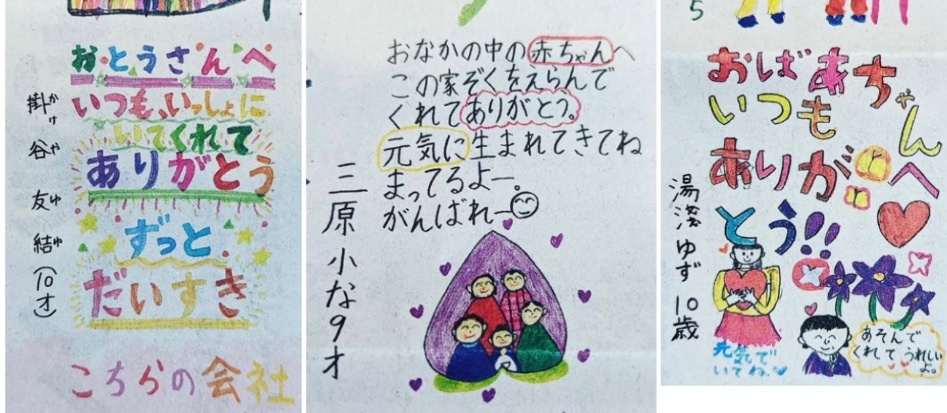 おとうさんへ
いつも、いっしょに
いてくれて
ありがとう
ずっと
だいすき
掛谷友結(10才)
かけやゆゆ
こちらの会社
おなかの中の赤ちゃんへ
この家ぞくをえらんで
くれてありがとう。
元気に生まれてきてね
まってるよー。
がんばれー
三原小な9才
5
おばあちゃんへ
いつも
ありがとう!!
湯浅ゆず10歳
元気で
いてね
あそんで
くれて
うれしいよ。